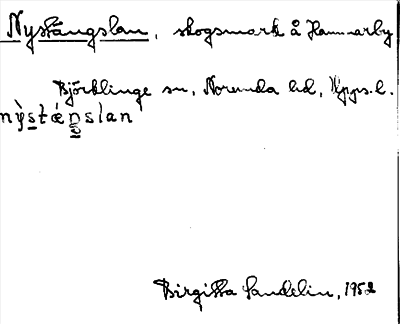 Nystängslan, skogsmark å Hammarby
Björklinge sn, Norunda hd, Upps. l.
nỳstǽnslan
Birgitta Sandelin, 1952